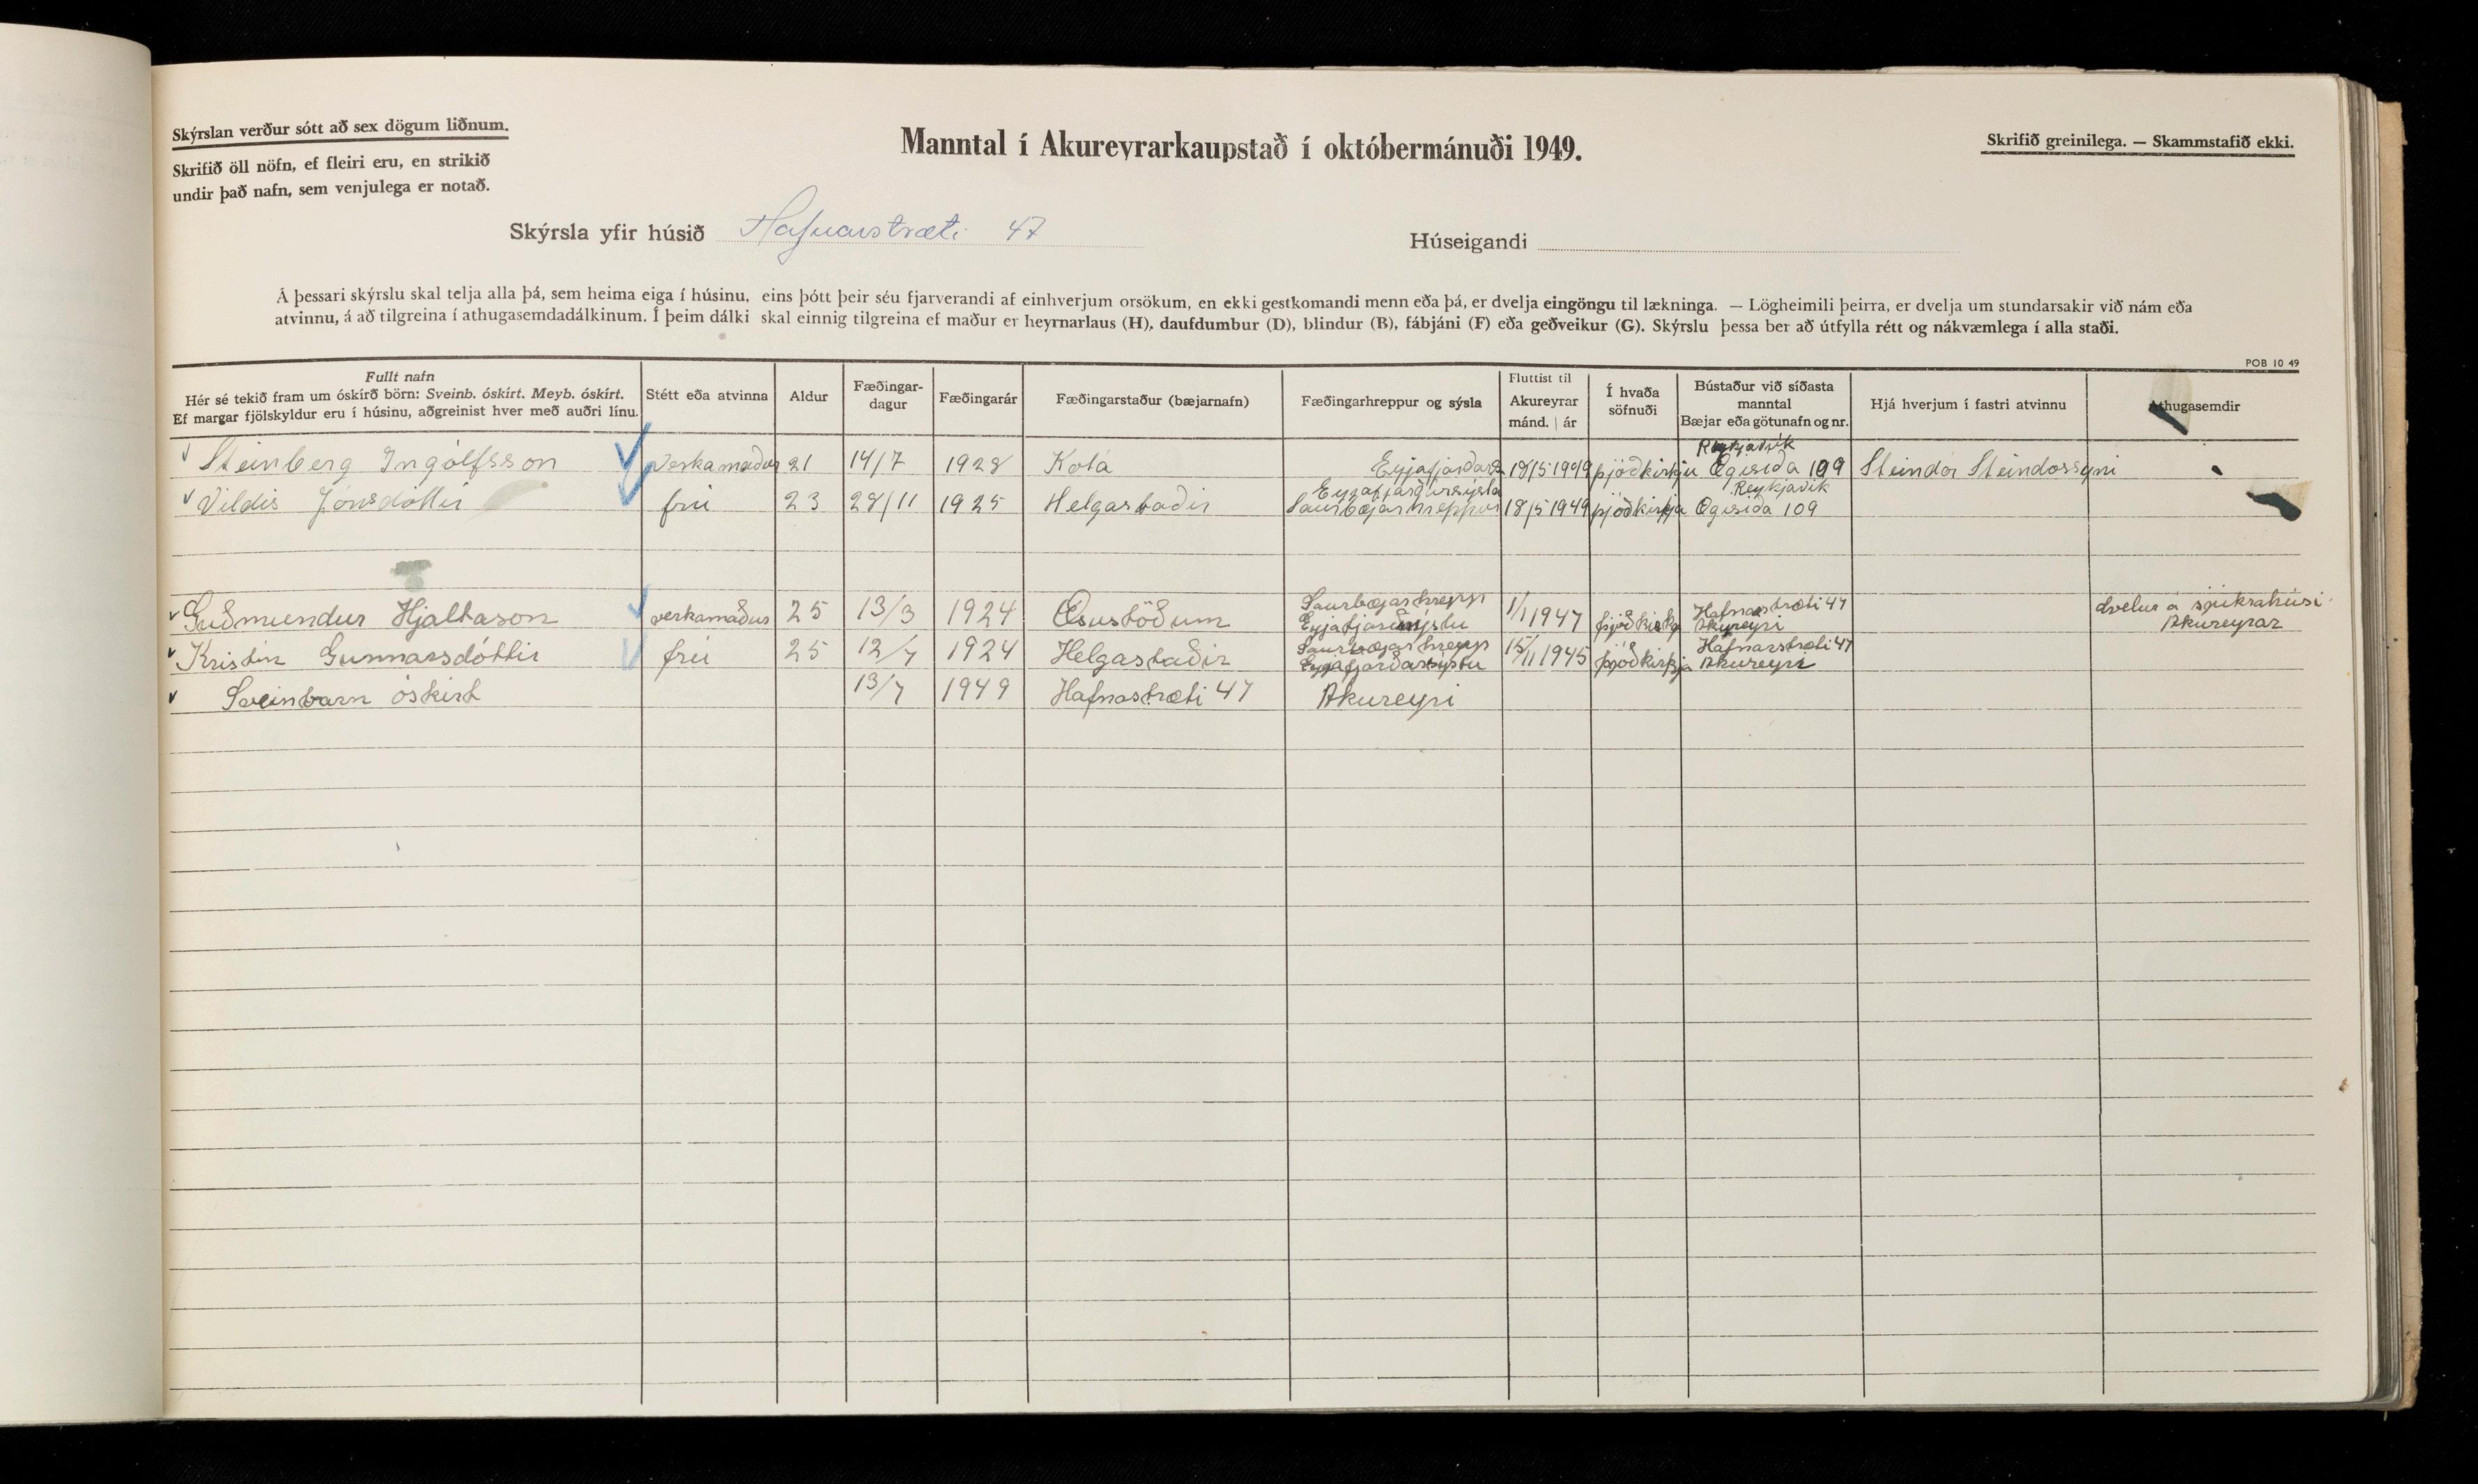 Skýrslan verður sótt að sex dögum liðnum.
Skrifið öll nöfn, ef fleiri eru, en strikið
undir það nafn, sem venjulega er notað.
Manntal í Akureyrarkaupstað í októbermánuði 1949.
Skrifið greinilega. — Skammstafið ekki.
Skýrsla yfir húsið Hafnarstræti 47
Húseigandi
Á þessari skýrslu skal telja alla þá, sem heima eiga í húsinu, eins þótt þeir séu fjarverandi af einhverjum orsökum, en ekki gestkomandi menn eða þá, er dvelja eingöngu til lækninga. — Lögheimili þeirra, er dvelja um stundarsakir við nám eða
atvinnu, á að tilgreina í athugasemdadálkinum. Í þeim dálki skal einnig tilgreina ef maður er heyrnarlaus (H), daufdumbur (D), blindur (B), fábjáni (F) eða geðveikur (G). Skýrslu þessa ber að útfylla rétt og nákvæmlega í alla staði.
POB 10 49
Fullt nafn
Hér sé tekið fram um óskírð börn: Sveinb. óskírt. Meyb. óskírt.
Ef margar fjölskyldur eru í húsinu, aðgreinist hver með auðri línu.
Stétt eða atvinna
Aldur
Fæðingar-
dagur
Fæðingarár
Fæðingarstaður (bæjarnafn)
Fæðingarhreppur og sýsla
Fluttist til
Akureyrar
mánd. | ár
Í hvaða
söfnuði
Bústaður við síðasta
manntal
Bæjar eða götunafn og nr.
Hjá hverjum í fastri atvinnu
Athugasemdir
Reykjavík
Steinberg Ingólfsson verkamaður 21 14/7 1928 Kotá Eyjafjarðars 18/5 1949 þjóðkirkju Ægisíða 109 Steindór Steindórssyni
Eyjafjarðarsýsla Reykjavík
Vildís Jónsdóttir frú 23 28/11 1925 Helgastaðir Saurbæjarhreppur 18/5 1949 þjóðkirkja Ægisíða 109
Saurbæjarhrepp Hafnarstræti 47 dvelur á sjúkrahúsi
Guðmundur Hjaltason verkamaður 25 13/3 1924 Æsustöðum Eyjafjarðarsýslu 1/11947 þjóðkirkja Akureyri Akureyrar
Saurbæjarhrepp Hafnarstræti 47
Kristín Gunnarsdóttir frú 25 12/7 1924 Helgastaðir Eyjafjarðarsýslu 15/11 1945 þjóðkirkja Akureyri
Sveinbarn óskírt 13/7 1949 Hafnastræti 47 Akureyri